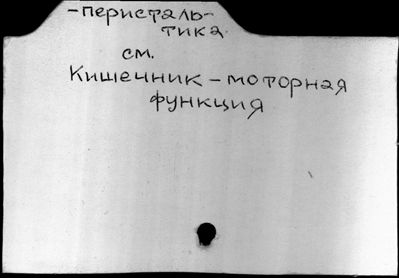 -перисталь-
тика
см.
Кишечник - моторная
функция